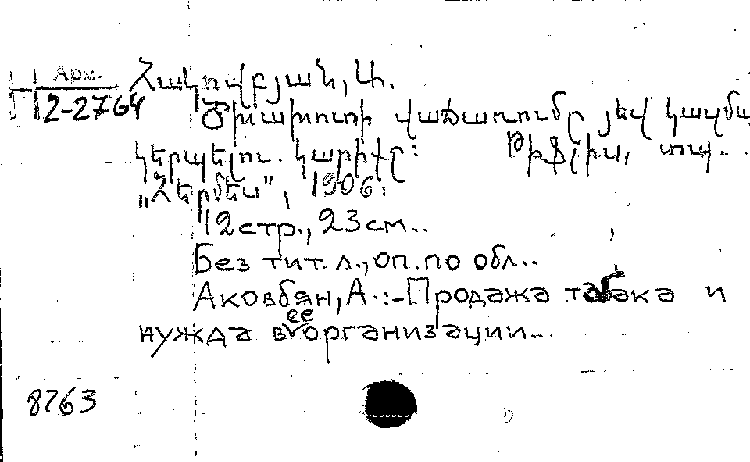 Арм.
12-2764
Հակովբյան, Ա.
Ծխախոտի վաճառումը յեվ կազմա
կերպելու կարիքը:
Թիֆլիս, տպ.
„Հերմես", 1906.
12стр., 23см..
Без тит. л., оп. по обл..
Аковбян, А.:-Продажа табака и
нужда в ее организации...
8763